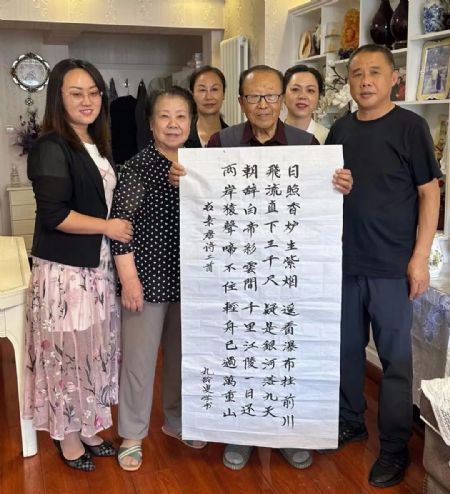 日照香炉生紫烟 遥看瀑布挂前川
飛流直下三千尺 疑是银河落九天
朝辞白帝彩雲間 千里江陵一日还
两岸猿聲啼不住 輕舟已過萬重山
右录唐诗二首